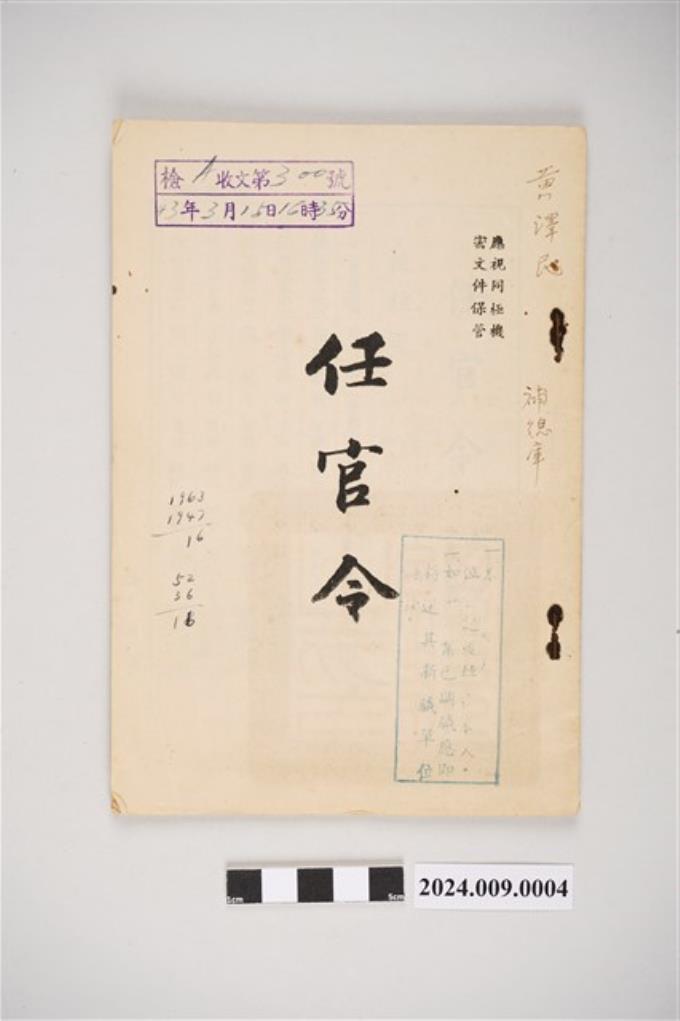 檢 A 收文第300號
43年3月15日16時35分
黃澤民
補總庫
應視同極機
密文件保管
任官令
1963
1947
16
52
36
16
其新職單位
2024.009.0004
1cm
5cm